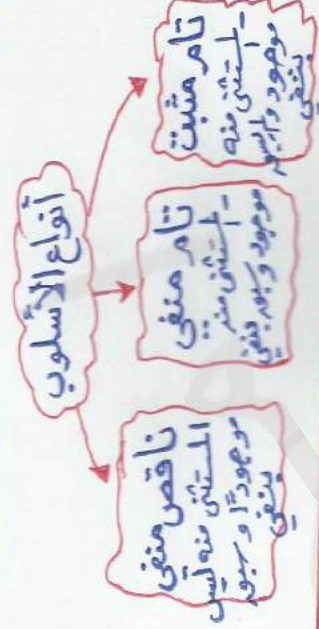 أنواع الأسلوب
تام مثبت
- المستثنى منه
موجود وليس
بنفي
تام منفي
- المستثنى منه
موجود وبه نفي
ناقص منفي
المستثنى منه ليس
موجودًا وبه
بنفي